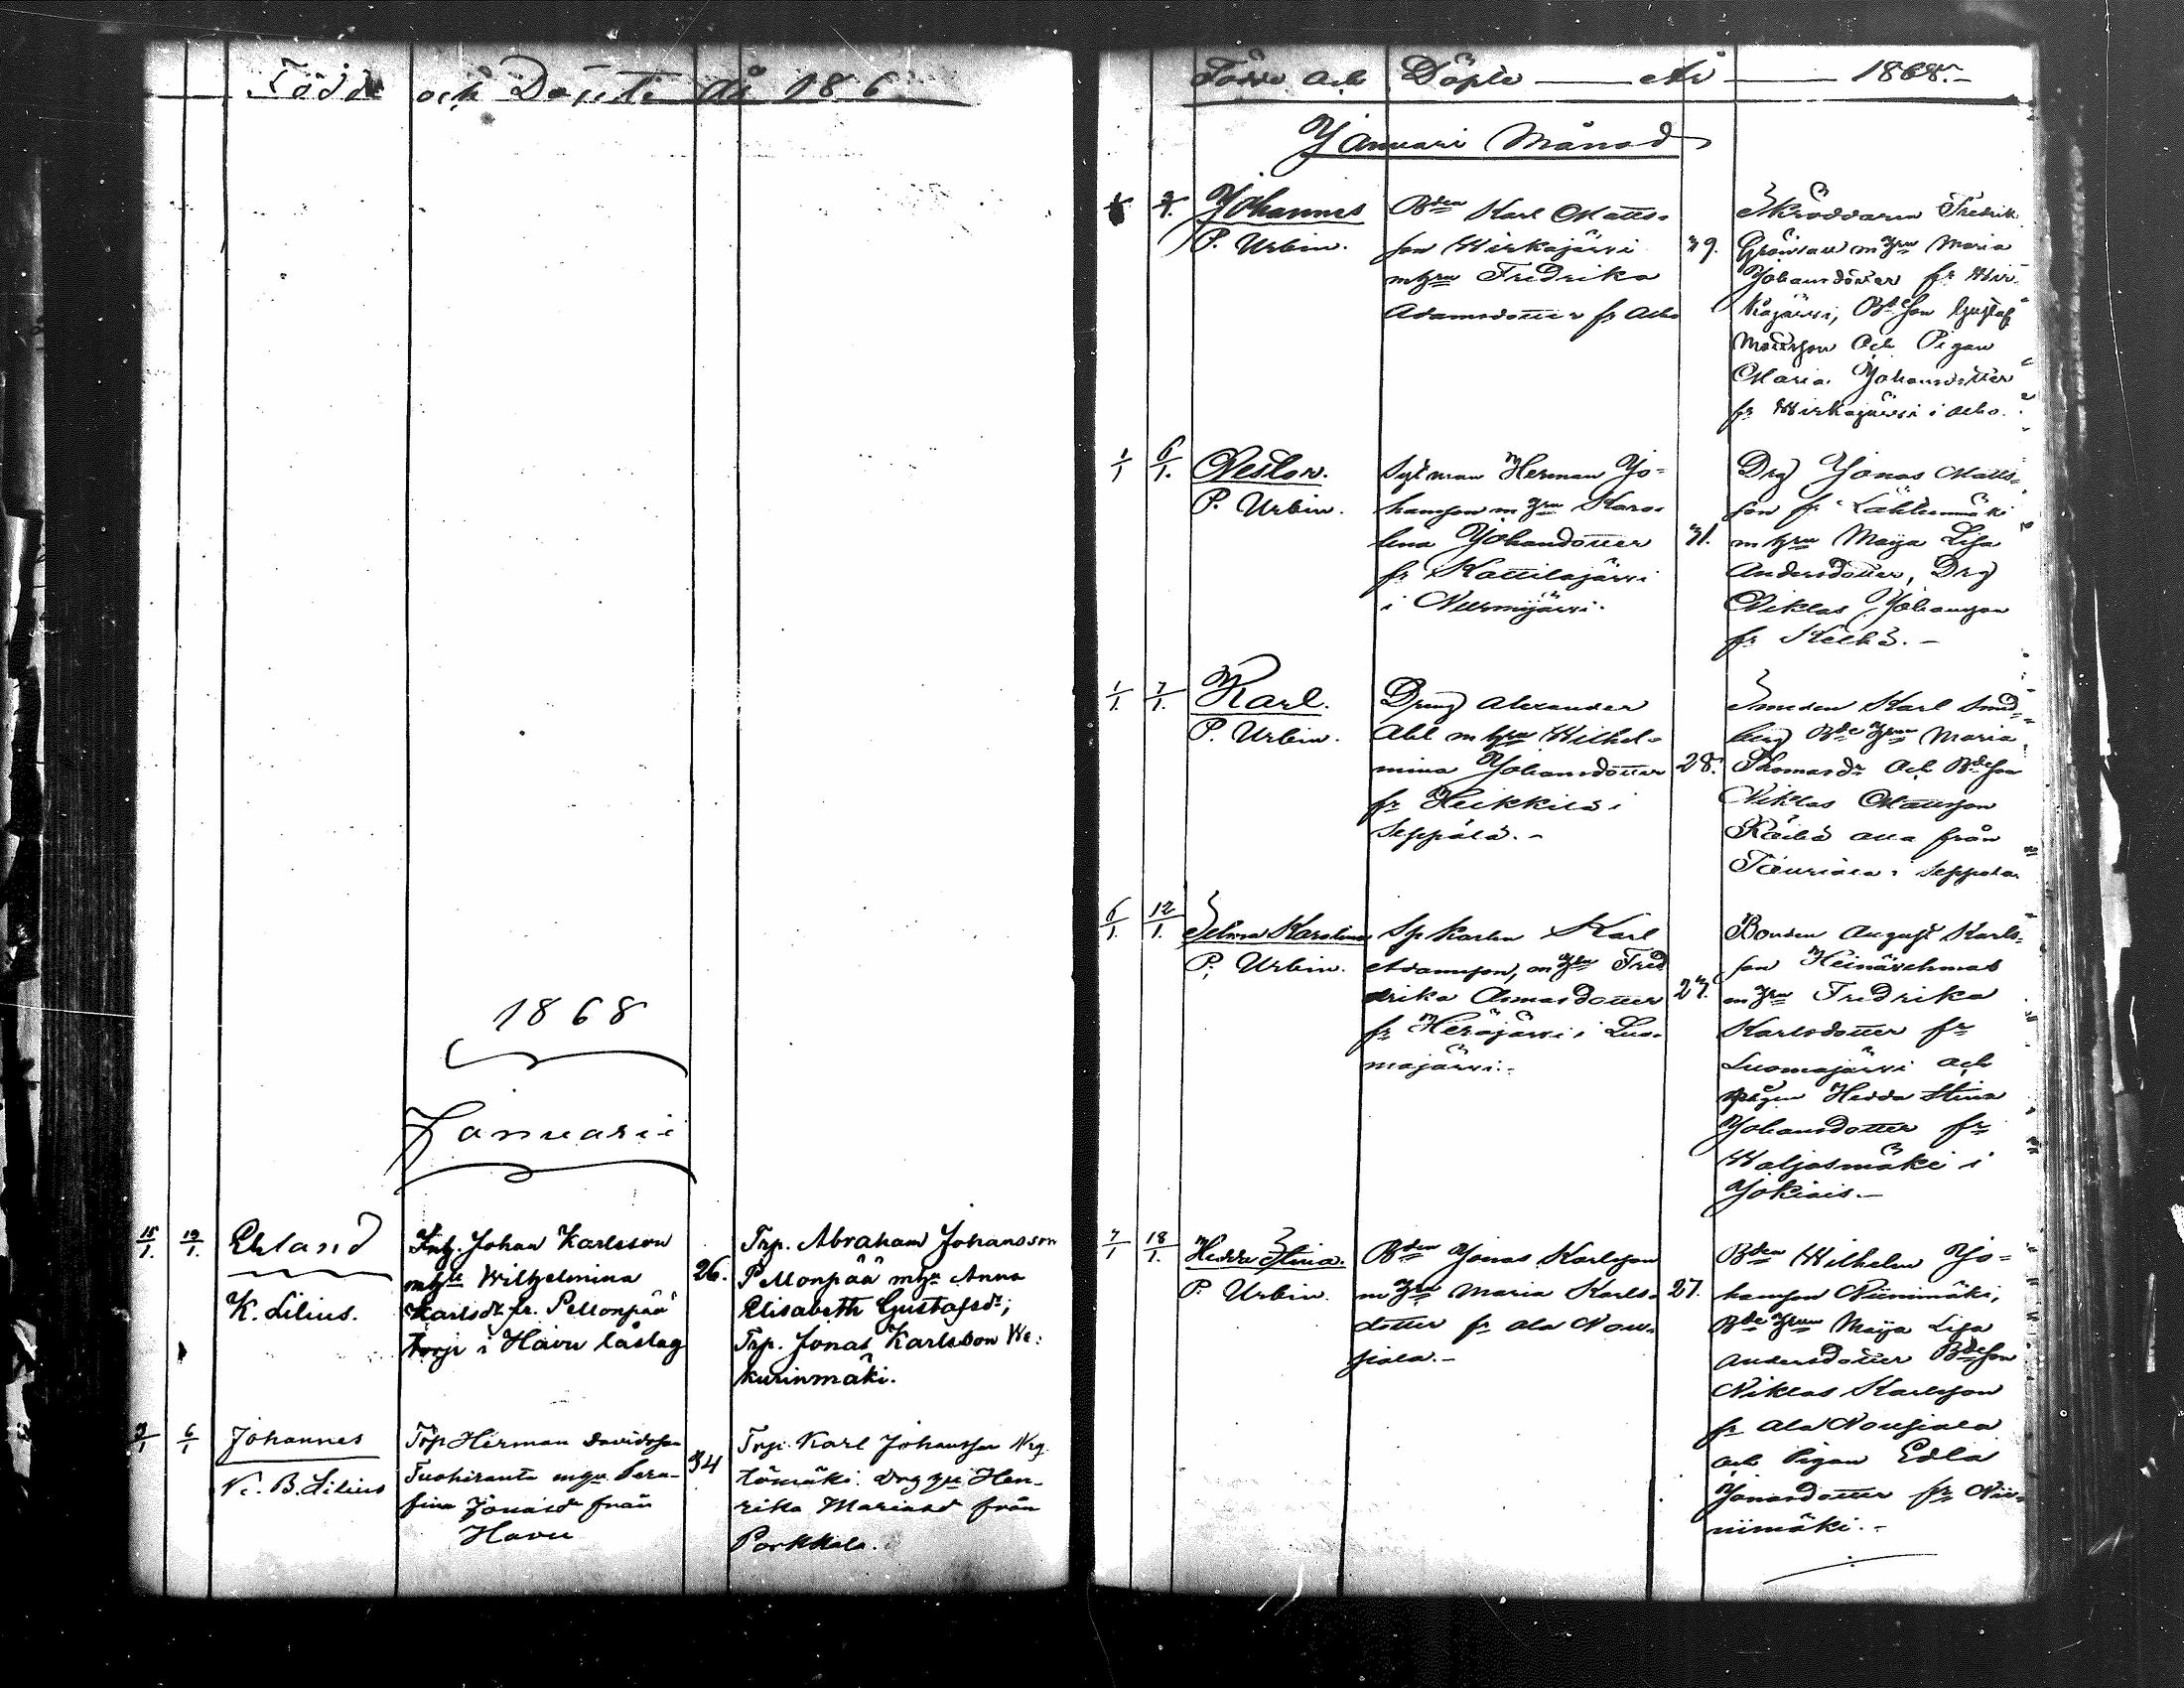 Född och Döpte år 186
1868
Januarii
15/1. 19/1. Ekland
K. Lilius.
Intg. Johan Karlsson
m hu Wilhelmina
Karlsdr fr. Pellonpää
torp i Havu låslag
26.
Trp. Abraham Johansson
Pellonpää m hu Anna
Elisabeth Gustafsdr;
Trp. Jonas Karlsson
kurinmäki.
3/1 6/1 Johannes
N. B. Lilius
Trp Herman Davidsson
Tuohiranta m hu Sera-
fina Jonasdr från
Havu
34
Trp. Karl Johansson
tömäki. Drg hu Hen-
rika Mariasd från
Porkkala.
Födde och Döpte — År — 1868.-
Januari Månad
Johannes
P. Urbin.
Bden Karl Matts-
son Wirkajärvi
m hru Fredrika
Adamsdotter fr Acho
39.
Skräddaren Fredrik
Grönvall m hru Maria
Johansdotter fr Wir-
kajärvi, Bdeson Gustaf
Mattsson och Pigan
Maria Johansdotter
fr Wirkajärvi i Acho.
1/1 6/1. Nestor.
P. Urbin.
Sytman Herman Jo-
hansson m hru Karo-
lina Johansdotter
fr Kattilajärvi
i Nurmijärvi.
31.
Drg Jonas Matts-
son fr Lähteenmäki
m hru Maija Lisa
Andersdotter, Drg
Niklas Johansson
fr
1/1. 7/1. Karl.
P. Urbin.
Dreng Alexander
Abel m hru Wilhel-
mina Johansdotter
fr Heikkilä i
Seppälä.-
28.
Smeden Karl Smed-
berg Bde hru Maria
Thomasdr och Bdeson
Niklas Mattsson
alla från
i Seppälä
6/1. 12/1. Selma Karolina
P. Urbin.
Spkarlen Karl
Adamsson, m hru Fred
rika Asmasdotter
fr Heräjärvi i Luo-
majärvi.-
27.
Bonden August Karls-
son
m hru Fredrika
Karlsdotter fr
Luomajärvi och
Pigan Hedda Stina
Johansdotter fr
Waljasmäki i
Jokiois.-
7/1 18/1. Hedda Stina.
P. Urbin.
Bden Jonas Karlsson
m hru Maria Karls-
dotter fr Ala Nou-
siala.-
27.
Bden Wilhelm Jo-
hansson Niinimäki,
Bde hrun Maija Lisa
Andersdotter Bdeson
Niklas Karlsson
fr Ala Nousiala
och Pigan Edla
Jonasdotter fr Nii-
nimäki.-